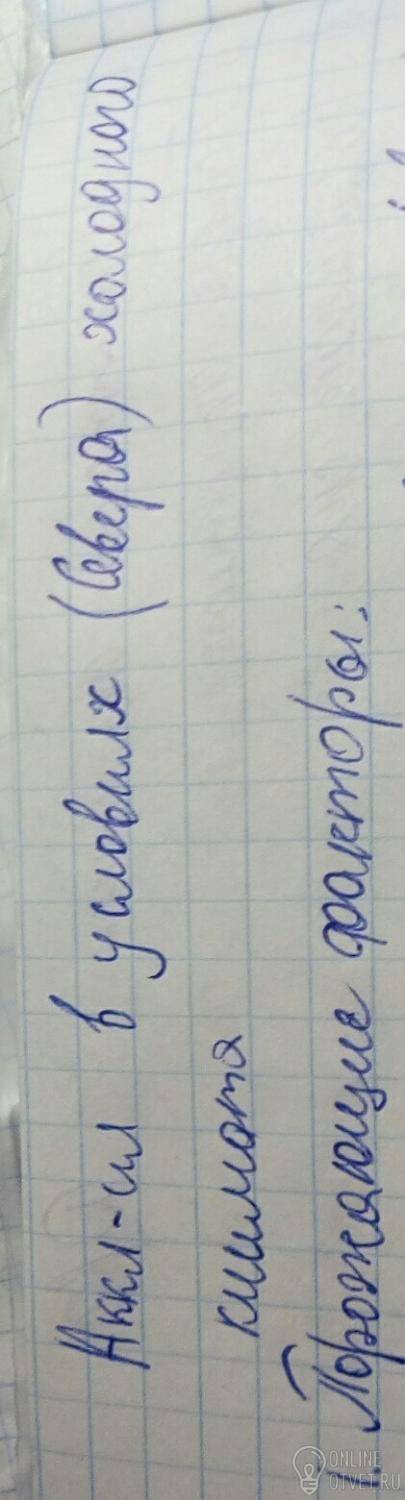 Аккл-ия в условиях (Севера) холодного
климата
Поражающие факторы:
ONLINE
OTVET.RU